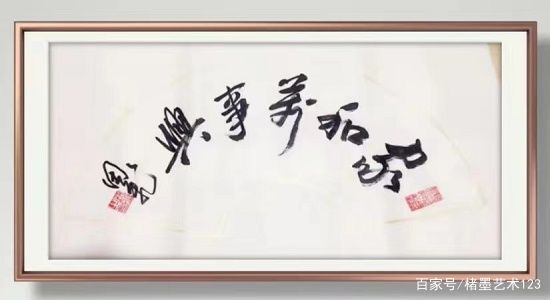 家和万事興
百家号/楮墨艺术123